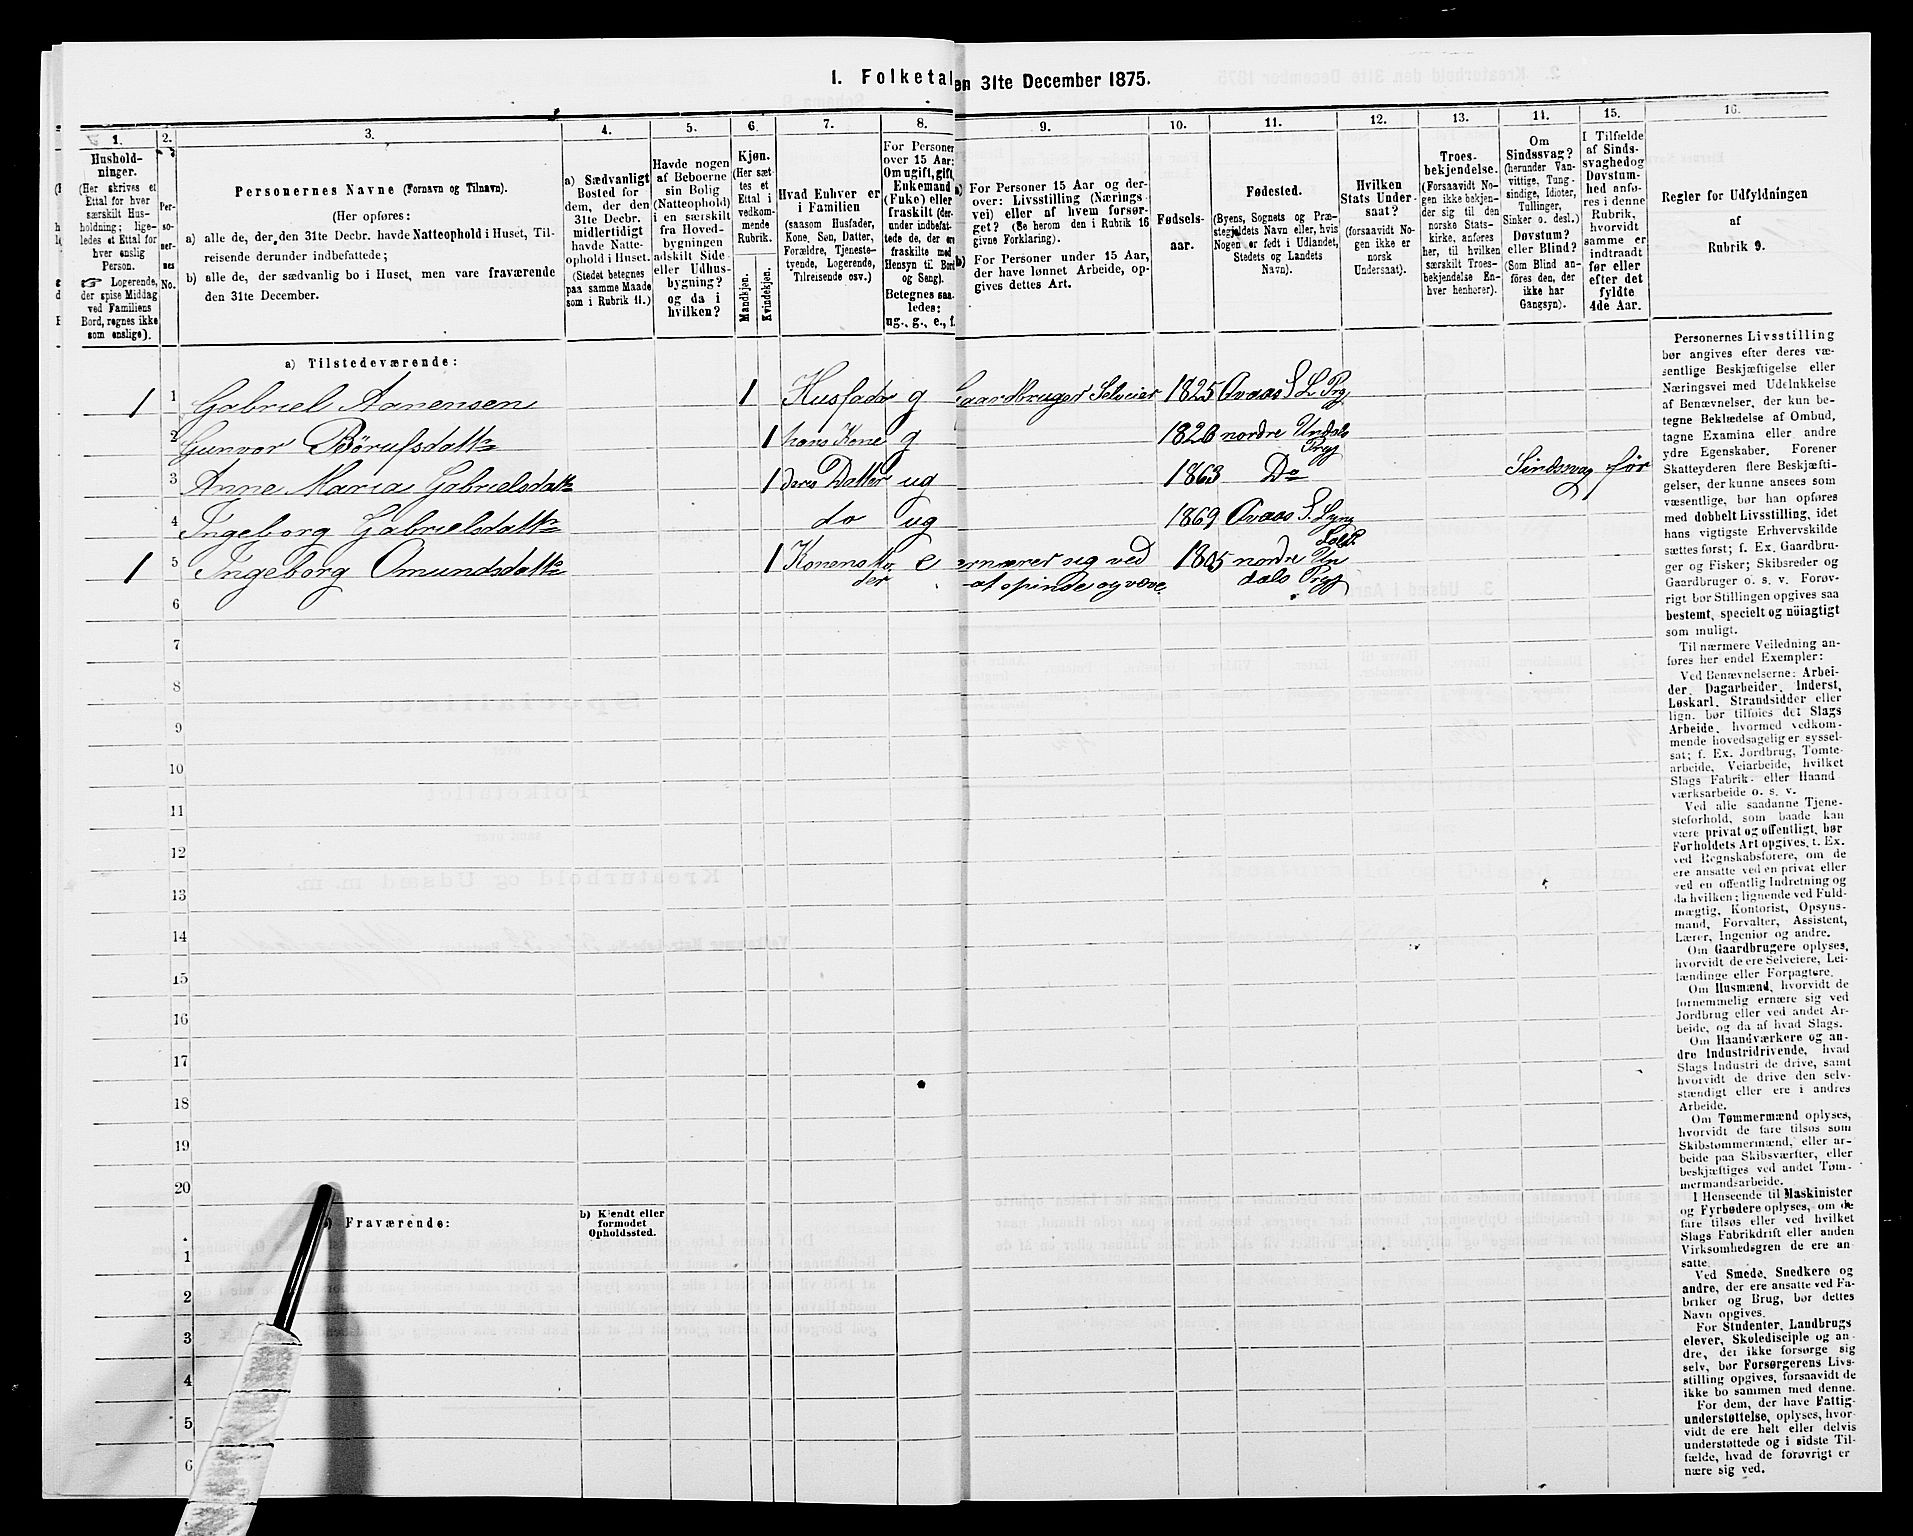 1. Folketal en 31te December 1875.
1.
2.
3.
4.
5.
6.
7.
8.
9.
10.
11.
12.
13.
14.
15.
16.
Hushold-
ninger.
(Her skrives et
Ettal for hver
særskilt Hus-
holdning; lige-
ledes et Ettal for
hver enslig
Person.
☞ Logerende,
der spise Middag
ved Familiens
Bord, regnes ikke
som enslige).
Per-
so-
ner-
nes
No.
Personernes Navne (Fornavn og Tilnavn).
(Her opføres:
a) alle de, der den 31te Decbr. havde Natteophold i Huset, Til-
reisende derunder indbefattede;
b) alle de, der sædvanlig bo i Huset, men vare fraværende
den 31te December.
a) Sædvanligt
Bosted for
dem, der den
31te Decbr.
midlertidigt
havde Natte-
ophold i Huset.
(Stedet betegnes
paa samme Maade
som i Rubrik 11.)
Havde nogen
af Beboerne
sin Bolig
(Natteophold)
i en særskilt
fra Hoved-
bygningen
adskilt Side-
eller Udhus-
bygning?
og da i
hvilken?
Kjøn.
(Her sæt-
tes et
Ettal i
vedkom-
mende
Rubrik.
Mandkjøn.
Kvindekjøn.
Hvad Enhver er
i Familien
(saasom Husfader,
Kone, Søn, Datter,
Forældre, Tjeneste-
tyende, Logerende,
Tilreisende osv.)
For Personer
over 15 Aar:
Om ugift, gift,
Enkemand
(Enke) eller
fraskilt (der-
under indbefat-
tede de, der ere
fraskilte med
Hensyn til Bord
og Seng).
Betegnes saa-
ledes:
ug., g., e., f.
a) For Personer 15 Aar og der-
over: Livsstilling (Nærings-
vei) eller af hvem forsør-
get? (Se herom den i Rubrik 16
givne Forklaring).
b) For Personer under 15 Aar,
der have lønnet Arbeide, op-
gives dettes Art.
Fødsels-
aar.
Fødested.
(Byens, Sognets og Præ-
stegjeldets Navn eller, hvis
Nogen er født i Udlandet,
Stedets og Landets
Navn).
Hvilken
Stats Under-
saat?
(forsaavidt No-
gen ikke er
norsk
Undersaat).
Troes-
bekjendelse.
(Forsaavidt No-
gen ikke bekjen-
der sig til den
norske Stats-
kirke, anføres
her, til hvilken
særskilt Troes-
bekjendelse En-
hver henhører).
Om
Sindssvag?
(herunder Van-
vittige, Tung-
sindige, Idioter,
Tullinger,
Sinker o. desl.)
Døvstum?
eller Blind?
(Som Blind an-
føres den, der
ikke har
Gangsyn).
I Tilfælde
af Sinds-
svaghed og
Døvstum-
hed anfø-
res i denne
Rubrik,
hvorvidt
samme er
indtraadt
før eller
efter det
fyldte
4de Aar.
Regler for Udfyldningen
af
Rubrik 9.
a) Tilstedeværende:
1 1 Gabriel Aanensen 1 Husfader g Gaardbruger Selveier 1825 Qvaas S L Prg
2 Gunvor Börufsdatter 1 hans Kone g 1826 nordre Undals
Prgj
3 Anne Maria Gabrielsdatter 1 deres Datter ug 1863 Do Sindssvag før
4 Ingeborg Gabrielsdatter do ug 1869 Qvaas S. Lyng
1 5 Ingeborg Omundsdatter 1 Konens Mo e ernærer sig ved 1805 nordre Un
der at spinde og væve. dals Prgj
6
7
8
9
10
11
12
13
14
15
16
17
18
19
20
) Fraværende:
b) Kjendt eller
formodet
Opholdssted.
1
2
3
4
5
6
Personernes Livsstilling
bør angives efter deres væ-
sentlige Beskjæftigelse eller
Næringsvei med Udelukkelse
af Benævnelser, der kun be-
tegne Beklædelse af Ombud,
tagne Examina eller andre
ydre Egenskaber. Forener
Skatteyderen flere Beskjæfti-
gelser, der kunne ansees som
væsentlige, bør han opføres
med dobbelt Livsstilling, idet
hans vigtigste Erhvervskilde
sættes først; f. Ex. Gaardbru-
ger og Fisker; Skibsreder og
Gaardbruger o. s. v. Forøv-
rigt bør Stillingen opgives saa
bestemt, specielt og nöiagtigt
som muligt.
Til nærmere Veiledning an-
føres her endel Exempler:
Ved Benævnelserne: Arbei-
der, Dagarbeider, Inderst,
Løskarl, Strandsidder eller
lign. bør tilføies det Slags
Arbeide, hvormed vedkom-
mende hovedsagelig er syssel-
sat; f. Ex. Jordbrug, Tomte-
arbeide, Veiarbeide, hvilket
Slags Fabrik- eller Haand
værksarbeide o. s. v.
Ved alle saadanne Tjene-
steforhold, som baade kan
være privat og offentligt, bør
Forholdets Art opgives, t. Ex.
ved Regnskabsførere, om de
ere ansatte ved en privat eller
ved en offentlig Indretning og
da hvilken; lignende ved Fuld-
mægtig, Kontorist, Opsyns-
mand, Forvalter, Assistent,
Lærer, Ingeniør og andre.
Om Gaardbrugere oplyses,
hvorvidt de ere Selveiere, Lei-
lændinge eller Forpagtere.
Om Husmænd, hvorvidt de
fornemmelig ernære sig ved
Jordbrug eller ved andet Ar-
beide, og da af hvad Slags.
Om Haandværkere og an-
dre Industridrivende, hvad
Slags Industri de drive, samt
hvorvidt de drive den selv-
stændigt eller ere i andres
Arbeide.
Om Tømmermænd oplyses,
hvorvidt de fare tilsøs som
Skibstømmermænd, eller ar-
beide paa Skibsværfter, eller
beskjæftiges ved andet Tøm-
mermandsarbeide.
I Henseende til Maskinister
og Fyrbødere oplyses, om de
fare tilsøs eller ved hvilket
Slags Fabrikdrift eller anden
Virksomhedsgren de ere an-
satte.
Ved Smede, Snedkere og
andre, der ere ansatte ved Fa-
briker og Brug, bør dettes
Navn opgives.
For Studenter, Landbrugs
elever, Skoledisciple og an-
dre, der ikke forsørge sig
selv, bør Forsørgerens Livs-
stilling opgives, forsaavidt de
ikke bo sammen med denne.
For dem, der have Fattig-
understøttelse, oplyses, hvor-
vidt de ere helt eller delvis
understøttede og i sidste Til-
fælde, hvad de forøvrigt er
nære sig ved.